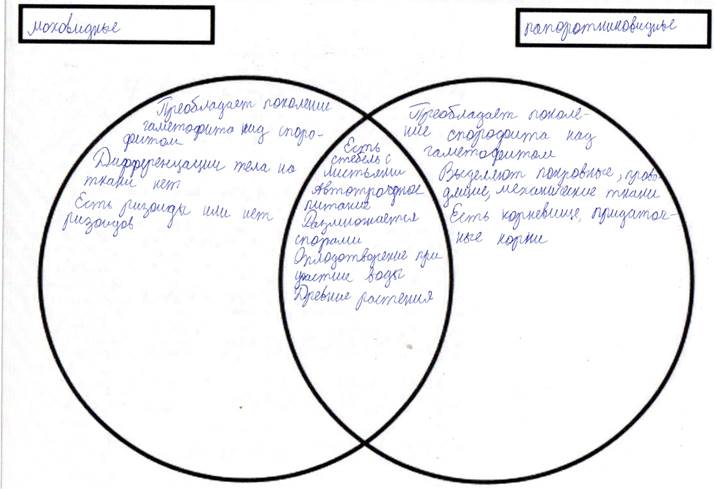 моховидные
папоротниковидные
Преобладает поколение
гаметофита над споро-
фитом
Дифференциации тела на
ткани нет
Есть ризоиды или нет
ризоидов
Есть
стебель с
листьями
Автотрофное
питание
Размножается
спорами
Оплодотворение при
участие воды
Древние растения
Преобладает поколе-
ние спорофита над
гаметофитом
Выделяют покровные, прово-
дящие, механические ткани
Есть корневище, придаточ-
ные корни